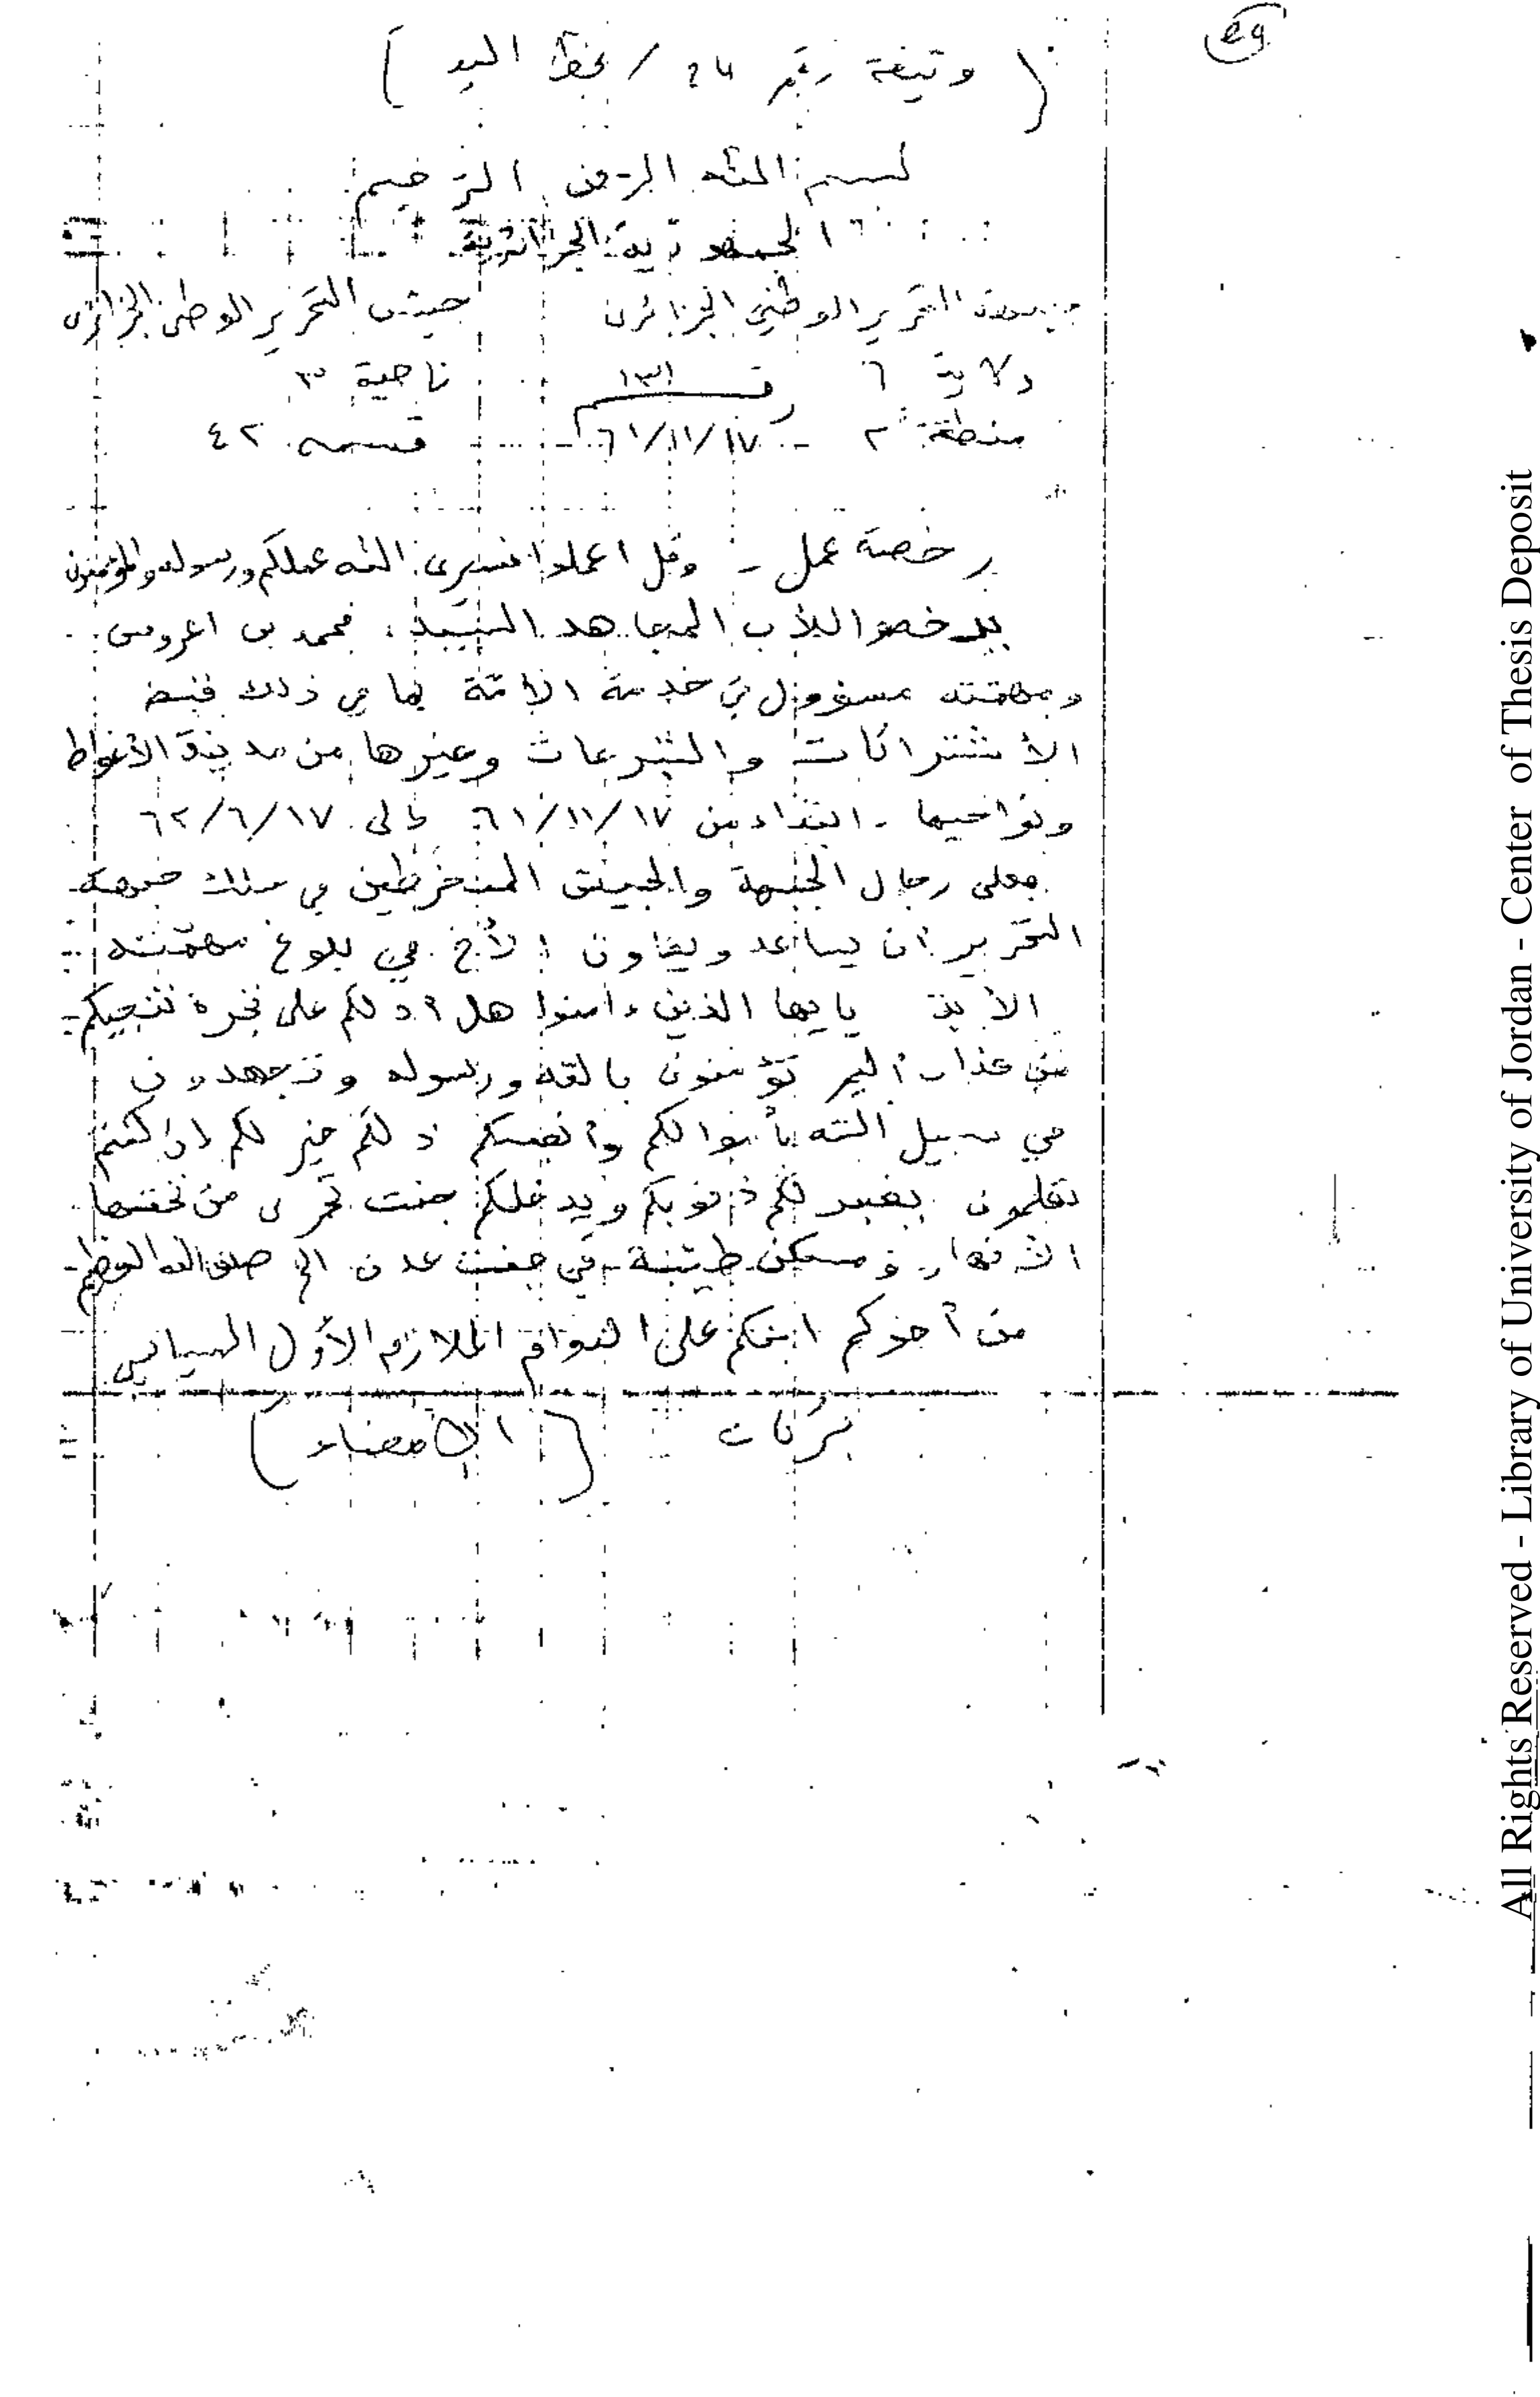 29
( وثيقة رقم 24 / بخط اليد )
بسم الله الرحمن الرحيم
الجمهورية الجزائرية
جبهة التحرير الوطني الجزائرى جيش التحرير الوطني الجزائرى
ولاية ٦ رقم ١٣١ ناحية ٣
منطقة ٢ - ٦١/١١/١٧ - قسمه ٤٢
رخصة عمل - وقل اعملوا فسيرى الله عملكم ورسوله والمؤمنون
يرخصوا للأب المجاهد السيد: محمد بن اعروس
ومهمته مسؤول في خدمة الأمة بما في ذلك قبض
الأشتراكات والتبرعات وغيرها من مدينة الأغواط
ونواحيها - ابتداء من ٦١/١١/١٧ إلى ٦٢/٦/١٧
فعلى رجال الجبهة والجيش المنخرطين في سلك جبهة
التحرير أن يساعد ويعاون الأخ في بلوغ مهمته
الآية يايها الذين ءامنوا هل أدلكم على تجرة تنجيكم
من عذاب أليم تؤمنون بالله ورسوله وتجهدون
في سبيل الله بأموالكم وأنفسكم ذلكم خير لكم إن كنتم
تعلمون يغفر لكم ذنوبكم ويدخلكم جنت تجرى من تحتها
الأنهار ومسكن طيبة في جنت عدن الخ صدق الله العظيم
من أخوكم ابنكم على الدوام الملازم الأول السياسي
بركات ( الإمضاء )
All Rights Reserved - Library of University of Jordan - Center of Thesis Deposit